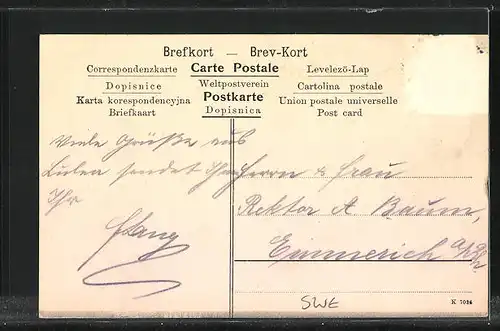 Brefkort — Brev-Kort
Correspondenzkarte Carte Postale Levelező-Lap
Dopisnice Weltpostverein Cartolina postale
Karta korespondencyjna Postkarte Union postale universelle
Briefkaart Dopisnica Post card
Viele Grüße aus
Lulea sendet Ihnen
Ihr
Herrn & Frau
Rektor A Baum,
Emmerich a/Rh
SWE
K 7024